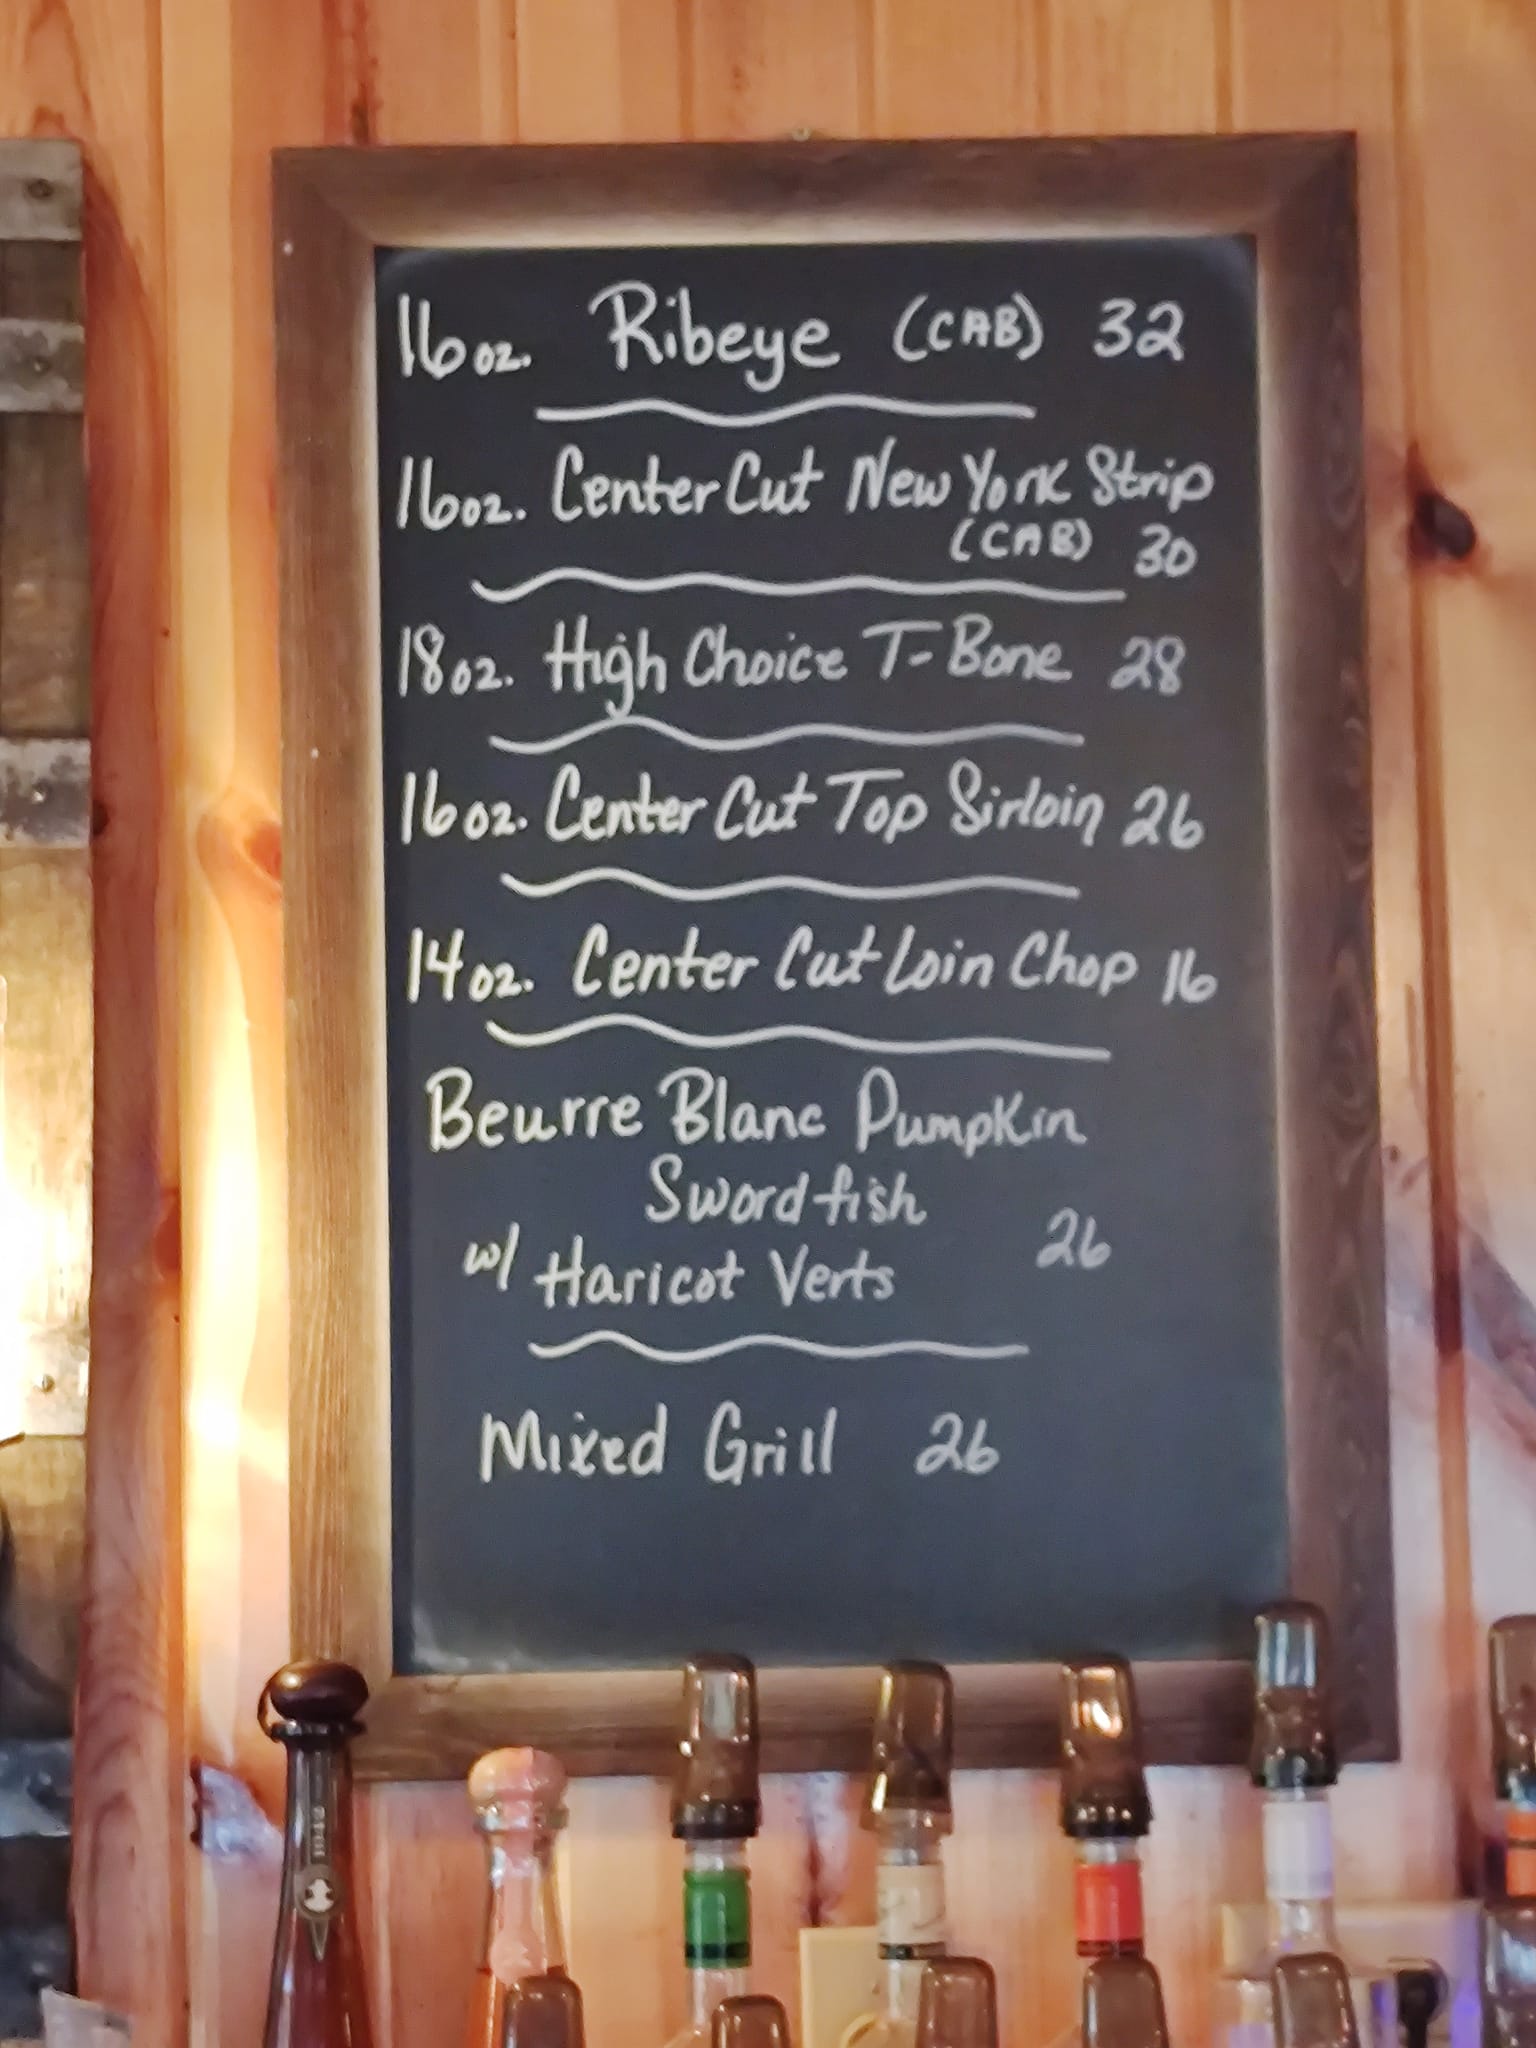 16oz. Ribeye (CAB) 32
16oz. Center Cut New York Strip
(CAB) 30
18oz. High Choice T-Bone 28
16oz. Center Cut Top Sirloin 26
14oz. Center Cut Loin Chop 16
Beurre Blanc Pumpkin
Swordfish
w/ Haricot Verts 26
Mixed Grill 26
1942